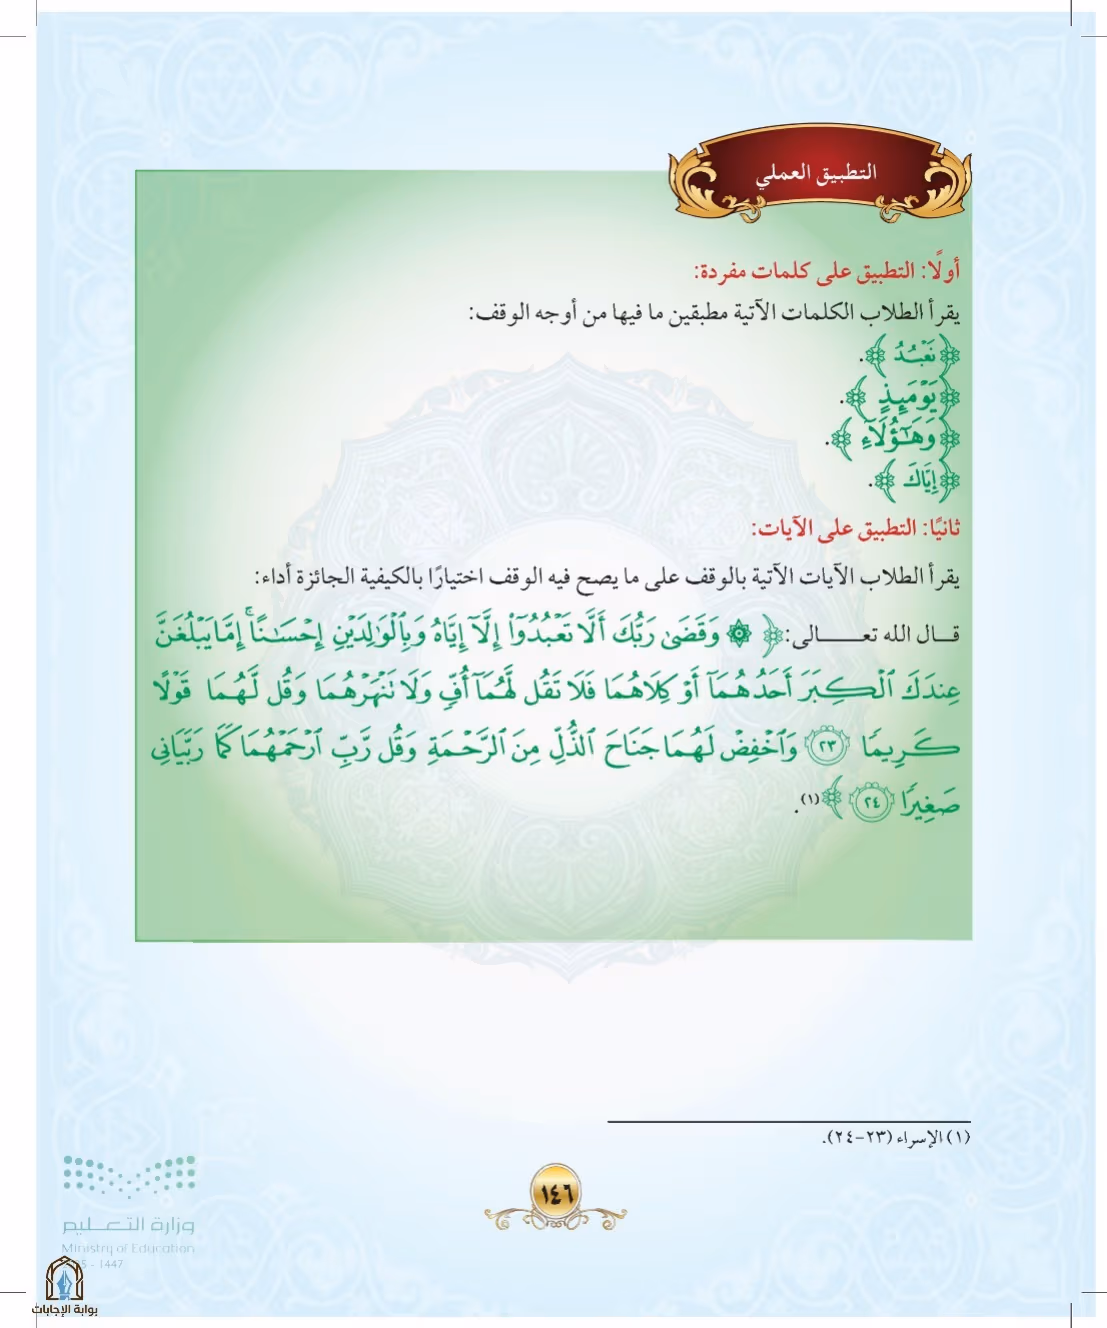 التطبيق العملي
أولًا: التطبيق على كلمات مفردة:
يقرأ الطلاب الكلمات الآتية مطبقين ما فيها من أوجه الوقف:
﴿نَعْبُدُ﴾.
﴿يَوْمَئِذٍ﴾.
﴿وَهَٰٓؤُلَآءِ﴾.
﴿إِيَّاكَ﴾.
ثانيًا: التطبيق على الآيات:
يقرأ الطلاب الآيات الآتية بالوقف على ما يصح فيه الوقف اختيارًا بالكيفية الجائزة أداء:
قال الله تعالى: ﴿۞ وَقَضَىٰ رَبُّكَ أَلَّا تَعْبُدُوٓا۟ إِلَّآ إِيَّاهُ وَبِٱلْوَٰلِدَيْنِ إِحْسَٰنًا ۚ إِمَّا يَبْلُغَنَّ
عِندَكَ ٱلْكِبَرَ أَحَدُهُمَآ أَوْ كِلَاهُمَا فَلَا تَقُل لَّهُمَآ أُفٍّ وَلَا تَنْهَرْهُمَا وَقُل لَّهُمَا قَوْلًا
كَرِيمًا ٢٣ وَٱخْفِضْ لَهُمَا جَنَاحَ ٱلذُّلِّ مِنَ ٱلرَّحْمَةِ وَقُل رَّبِّ ٱرْحَمْهُمَا كَمَا رَبَّيَانِى
صَغِيرًا ٢٤﴾(١).
(١) الإسراء (٢٣-٢٤).
١٤٦
وزارة التعليم
Ministry of Education
5 - 1447
بوابة الإجابات